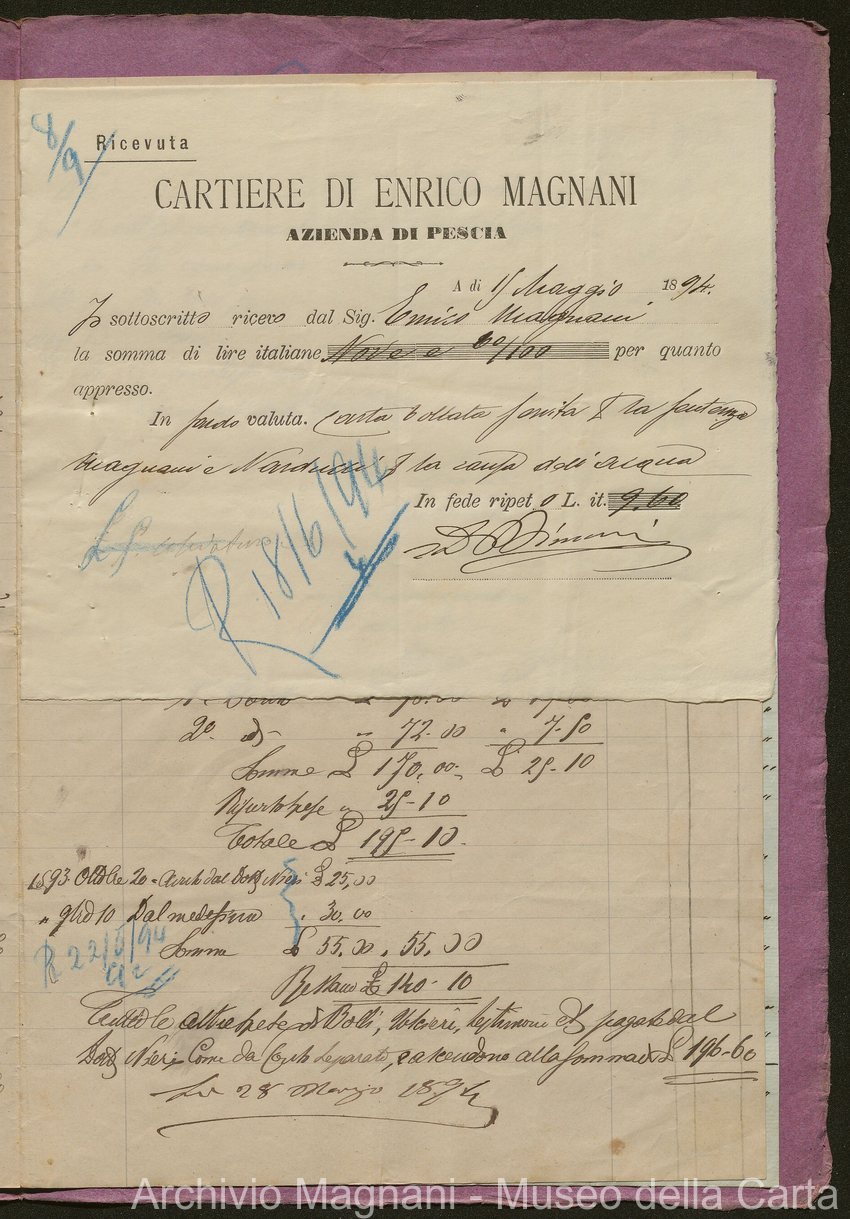 8/9
Ricevuta
CARTIERE DI ENRICO MAGNANI
AZIENDA DI PESCIA
A dì 15 Maggio 1894.
Io sottoscritto ricevo dal Sig. Enrico Magnani
la somma di lire italiane Nove e 60/100 per quanto
appresso.
In valuta. Carta bollata fornita la sentenza
Magnani e Narducci la causa dell'acqua
In fede ripeto L. it. 9.60
R 18/6/94
2º " 72.00 " 7.50
Somme £ 170.00 £ 25-10
Riporto spese " 25-10
Totale £ 195-10.
1893 Ottobre 20 = dal Dott Nieri £ 25,00
" 9bre 10 Dal medesimo " 30.00
R 22/5/94
Somma £ 55.00 " 55.00
Restano £ 140-10
Tutte le altre spese di Bolli, Uscieri, testimoni pagate dal
Dott Nieri Come da Conto separato, ascendono alla somma di £ 196-60
Li 28 Marzo 1894
Archivio Magnani - Museo della Carta